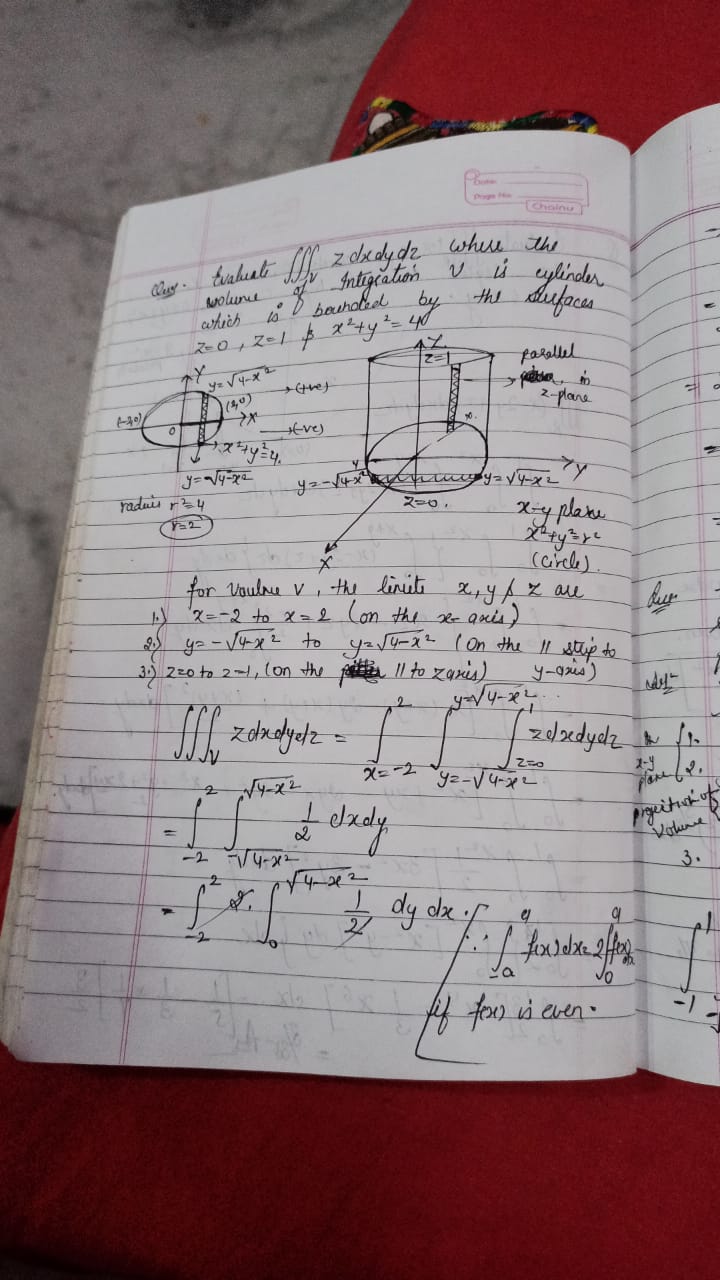 Date:
Page No.
Chainu
Ques. Evaluate ∭_V z dx dy dz where the
volume of Integration V is cylinder
which is bounded by the surfaces
z=0, z=1 & x²+y²=4
Y
y=√(4-x²)
→(+ve)
(2,0)
(-2,0)
0
X
→(-ve)
x²+y²=4.
y=-√(4-x²)
radius r²=4
r=2
Z
z=1
parallel
in
z-plane
y=-√(4-x²)
y=√(4-x²)
Y
z=0.
X
x-y plane
x²+y²=r²
(circle).
for voulne v, the limits x, y & z are
1.) x=-2 to x=2 (on the x-axis)
2.) y=-√(4-x²) to y=√(4-x²) (on the || strip to
y-axis)
3.) z=0 to z=1, (on the || to z axis)
∭_V z dx dy dz = ∫_{x=-2}^{2} ∫_{y=-√(4-x²)}^{y=√(4-x²)} ∫_{z=0}^{1} z dx dy dz
= ∫_{-2}^{2} ∫_{-√(4-x²)}^{√(4-x²)} 1/2 dx dy
= ∫_{-2}^{2} 2. ∫_{0}^{√(4-x²)} 1/2 dy dx.
∵ ∫_{-a}^{a} f(x) dx = 2∫_{0}^{a} f(x) dx
if f(x) is even.
Ques.
x-y
plane
1.
2.
projection of
volume
3.
∫_{-1}^{1}